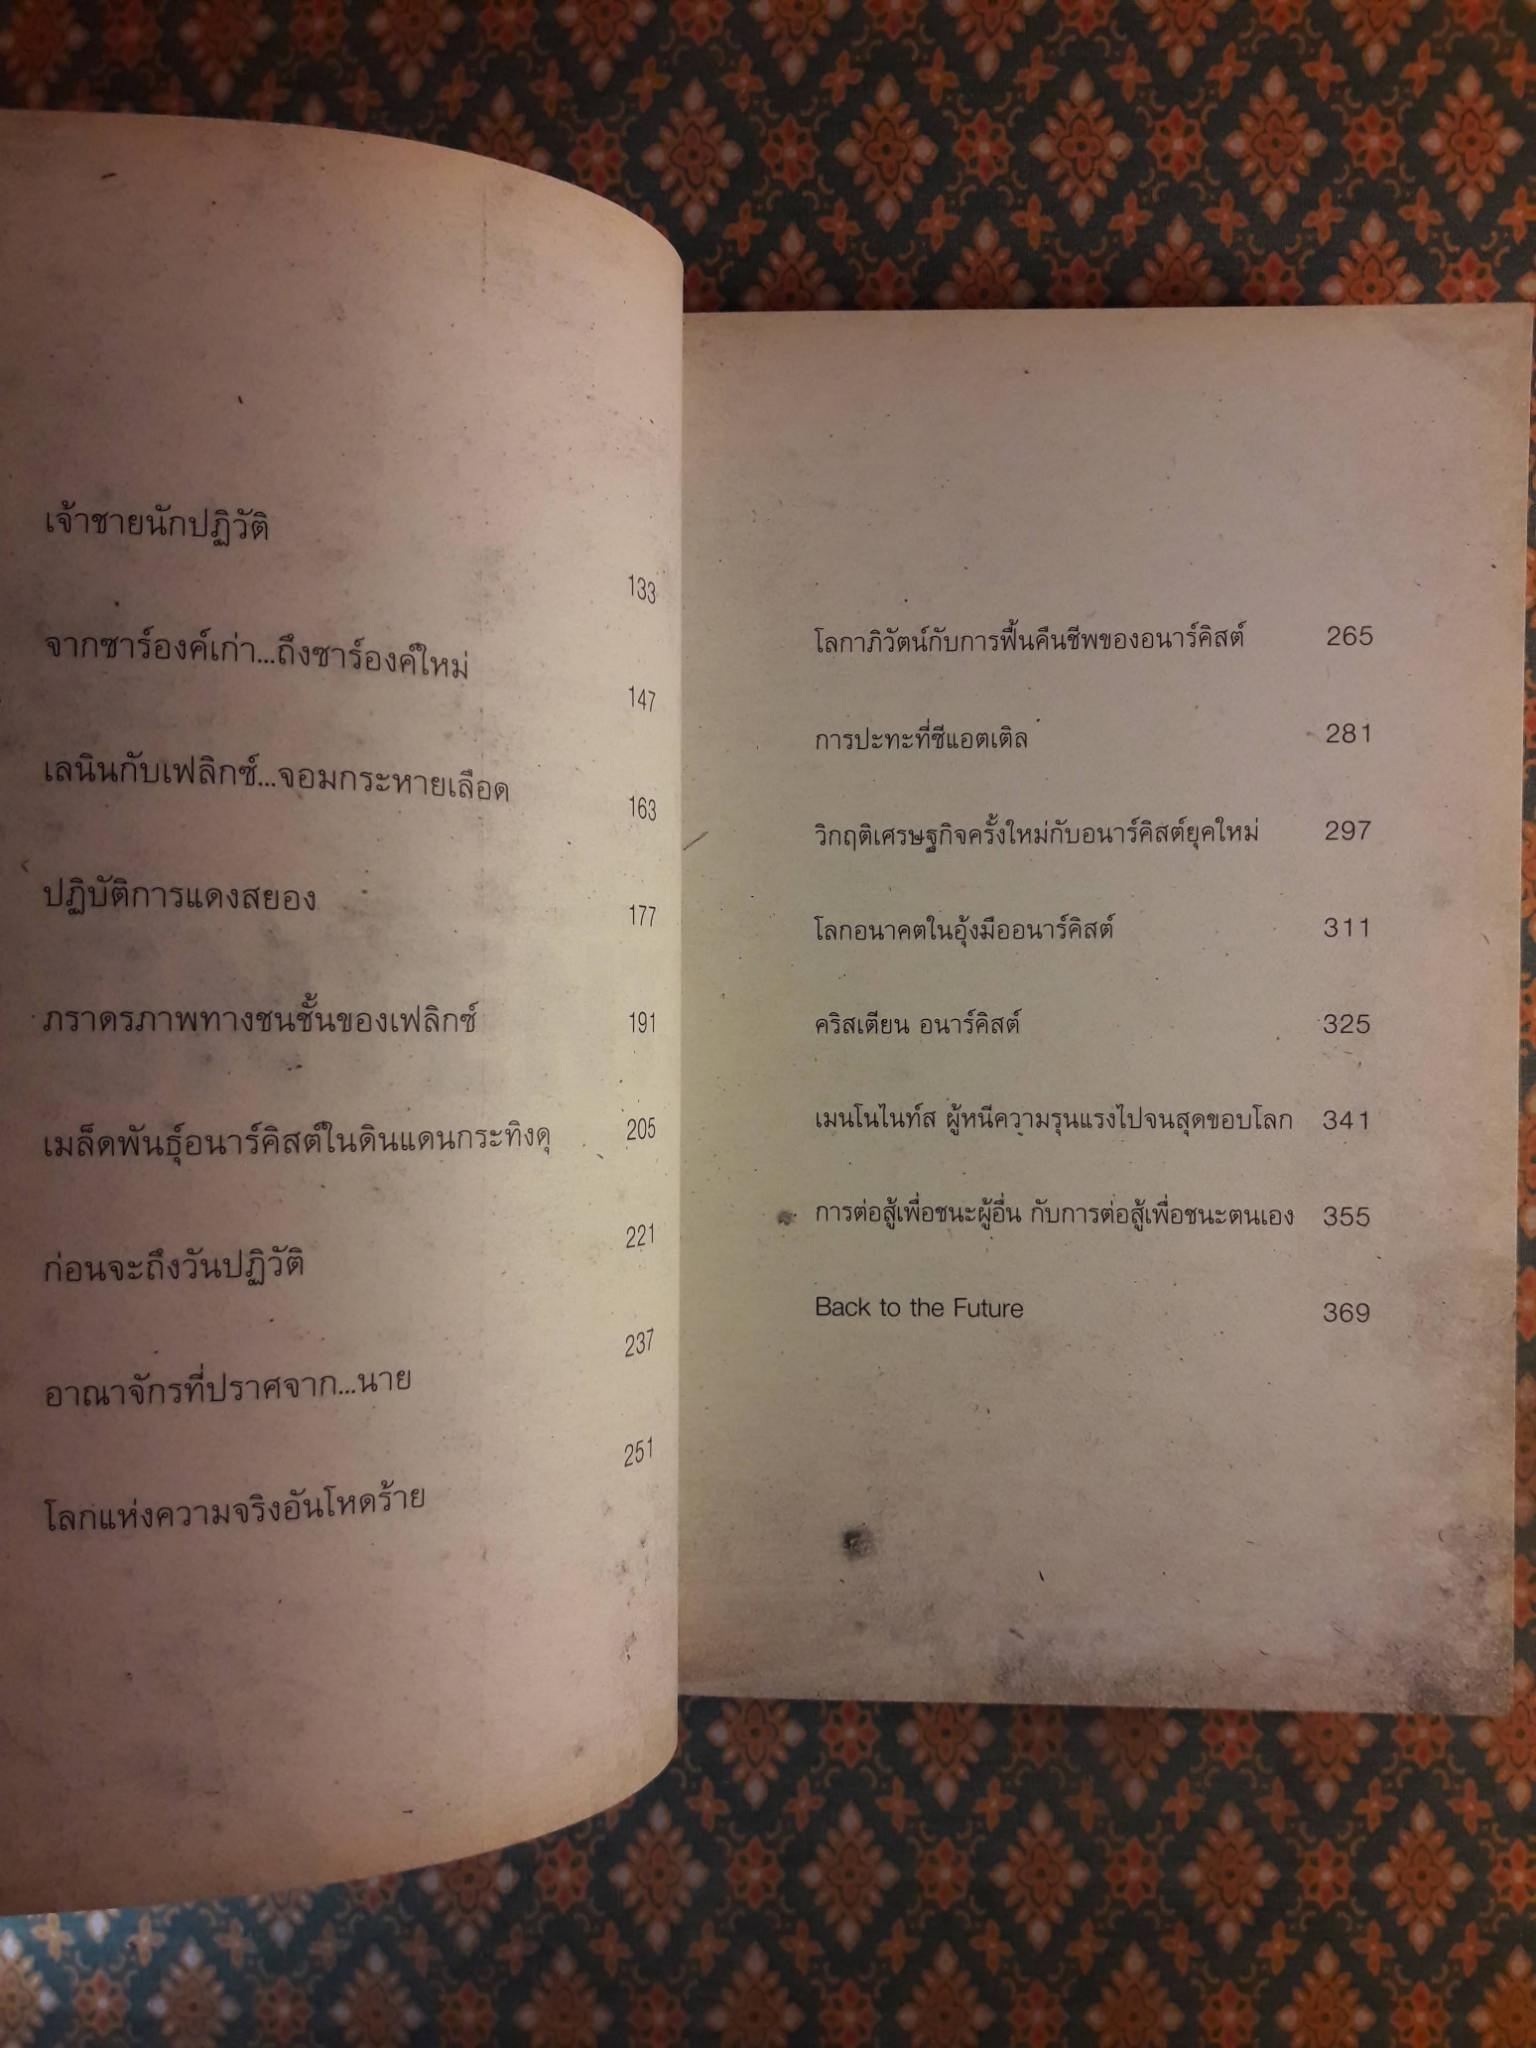 เจ้าชายนักปฏิวัติ 133
จากซาร์องค์เก่า...ถึงซาร์องค์ใหม่ 147
เลนินกับเฟลิกซ์...จอมกระหายเลือด 163
ปฏิบัติการแดงสยอง 177
ภราดรภาพทางชนชั้นของเฟลิกซ์ 191
เมล็ดพันธุ์อนาร์คิสต์ในดินแดนกระทิงดุ 205
ก่อนจะถึงวันปฏิวัติ 221
อาณาจักรที่ปราศจาก...นาย 237
โลกแห่งความจริงอันโหดร้าย 251
โลกาภิวัตน์กับการฟื้นคืนชีพของอนาร์คิสต์ 265
การปะทะที่ซีแอตเติล 281
วิกฤติเศรษฐกิจครั้งใหม่กับอนาร์คิสต์ยุคใหม่ 297
โลกอนาคตในอุ้งมืออนาร์คิสต์ 311
คริสเตียน อนาร์คิสต์ 325
เมนโนไนท์ส ผู้หนีความรุนแรงไปจนสุดขอบโลก 341
การต่อสู้เพื่อชนะผู้อื่น กับการต่อสู้เพื่อชนะตนเอง 355
Back to the Future 369